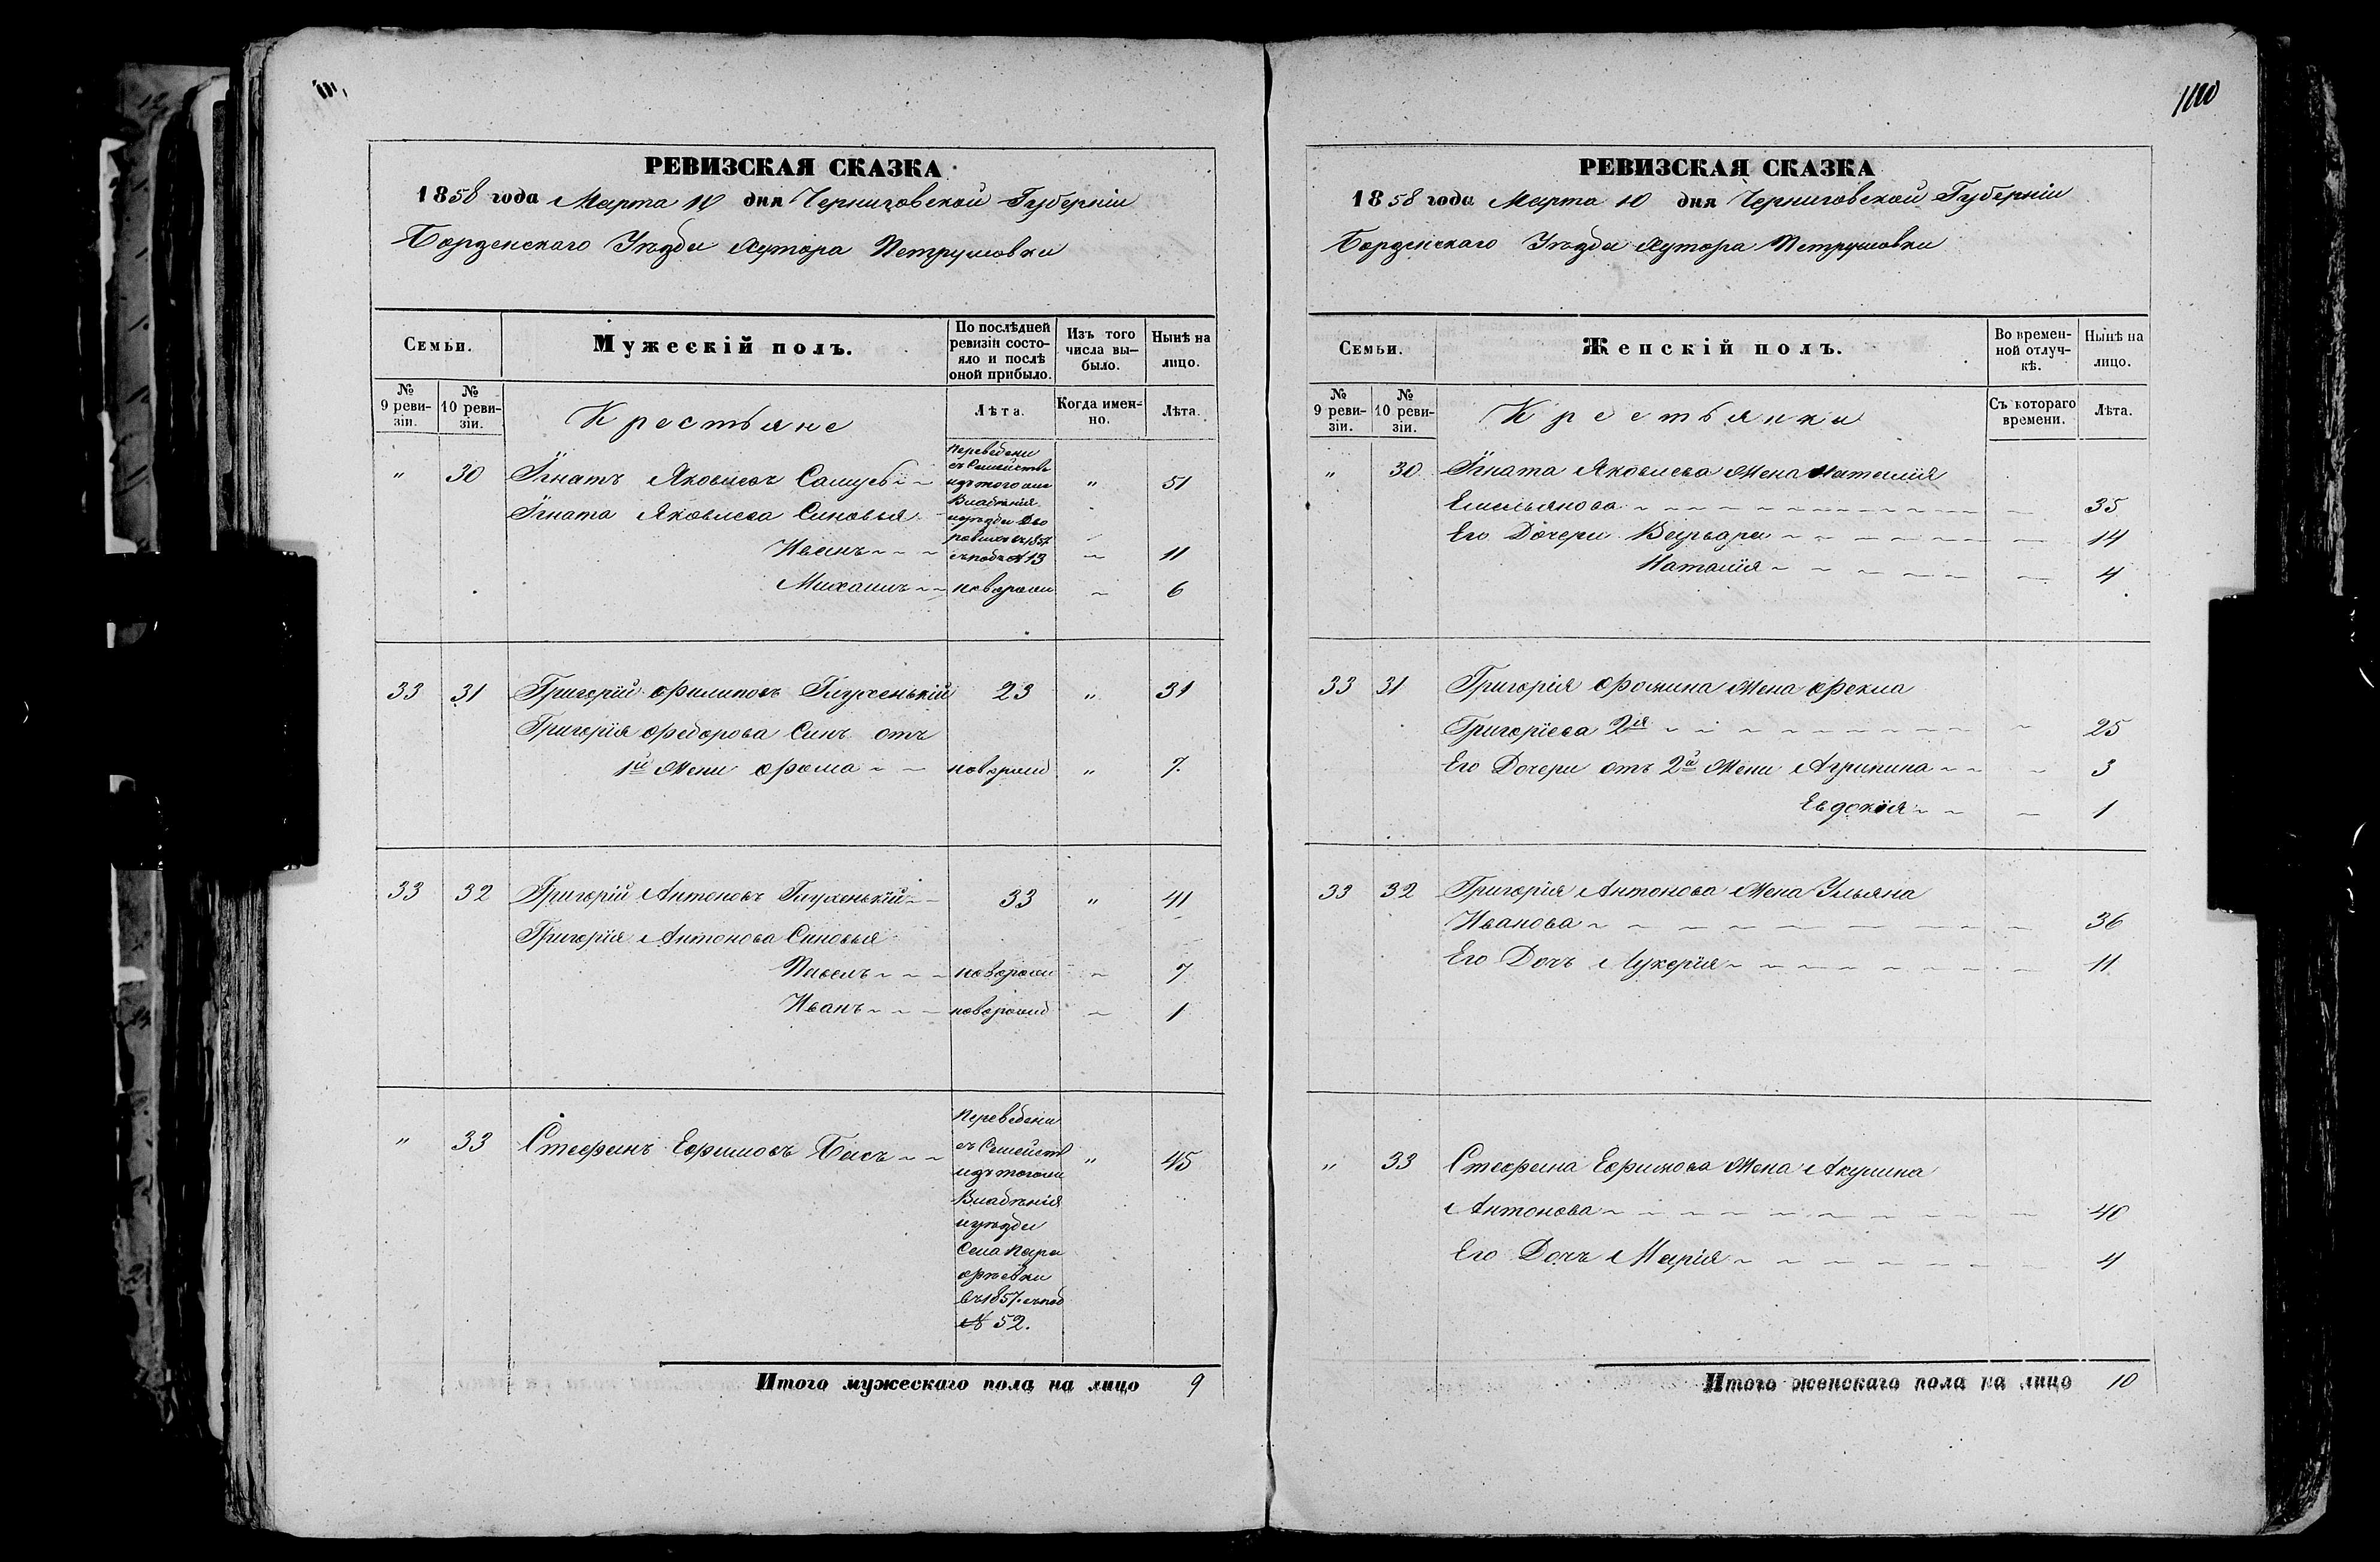 РЕВИЗСКАЯ СКАЗКА
1858 года Марта 10 дня Черниговской Губерніи
Борзенскаго Уѣзда Хутора Петрушовки
Семьи.
Мужескій полъ.
По послѣдней ревизіи состояло и послѣ оной прибыло.
Изъ того числа выбыло.
Нынѣ на лицо.
№ 9 ревизіи.
№ 10 ревизіи.
Крестьяне
Лѣта.
Когда именно.
Лѣта.
" 30 Ігнатъ Яковлевъ " 51
Ігната Яковлева Синовья
Иванъ 11
Михаилъ новорожд 6
Переведени
съ Семейств
изъ того жъ
Владѣнія
въ 1857
съ под № 13
33 31 Григорій Филиповъ Глухенькій 23 " 31
Григорія Федорова Синъ отъ
1й Жени Фома новорожд " 7.
33 32 Григорій Антоновъ Глухенькій 33 " 41
Григорія Антонова Синовья
Павелъ новорожд 7
Иванъ новорожд 1
" 33 Стефанъ Ефимовъ Басъ " 45
Переведени
съ Семейств
изъ того жъ
Владѣнія
и уѣзда
Села Пара
фѣевки
въ 1857. съ под
№ 52.
Итого мужескаго пола на лицо 9
РЕВИЗСКАЯ СКАЗКА
1858 года Марта 10 дня Черниговской Губерніи
Борзенскаго Уѣзда Хутора Петрушовки
Семьи.
Женскій полъ.
Во временной отлучкѣ.
Нынѣ на лицо.
№ 9 ревизіи.
№ 10 ревизіи.
Крестьянки
Съ котораго времени.
Лѣта.
" 30 Ігната Яковлева Жена Наталія
Емельянова 35
Его Дочери Варвара 14
Наталія 4
33 31 Григорія Жена Фекла
Григоріева 2я 25
Его Дочери отъ 2й Жени Агрипина 3
Евдокія 1
33 32 Григорія Антонова Жена Ульяна
Иванова 36
Его Дочъ Лукерія 11
" 33 Стефана Ефимова Жена Акулина
Антонова 40
Его Дочъ Марія 4
Итого женскаго пола на лицо 10